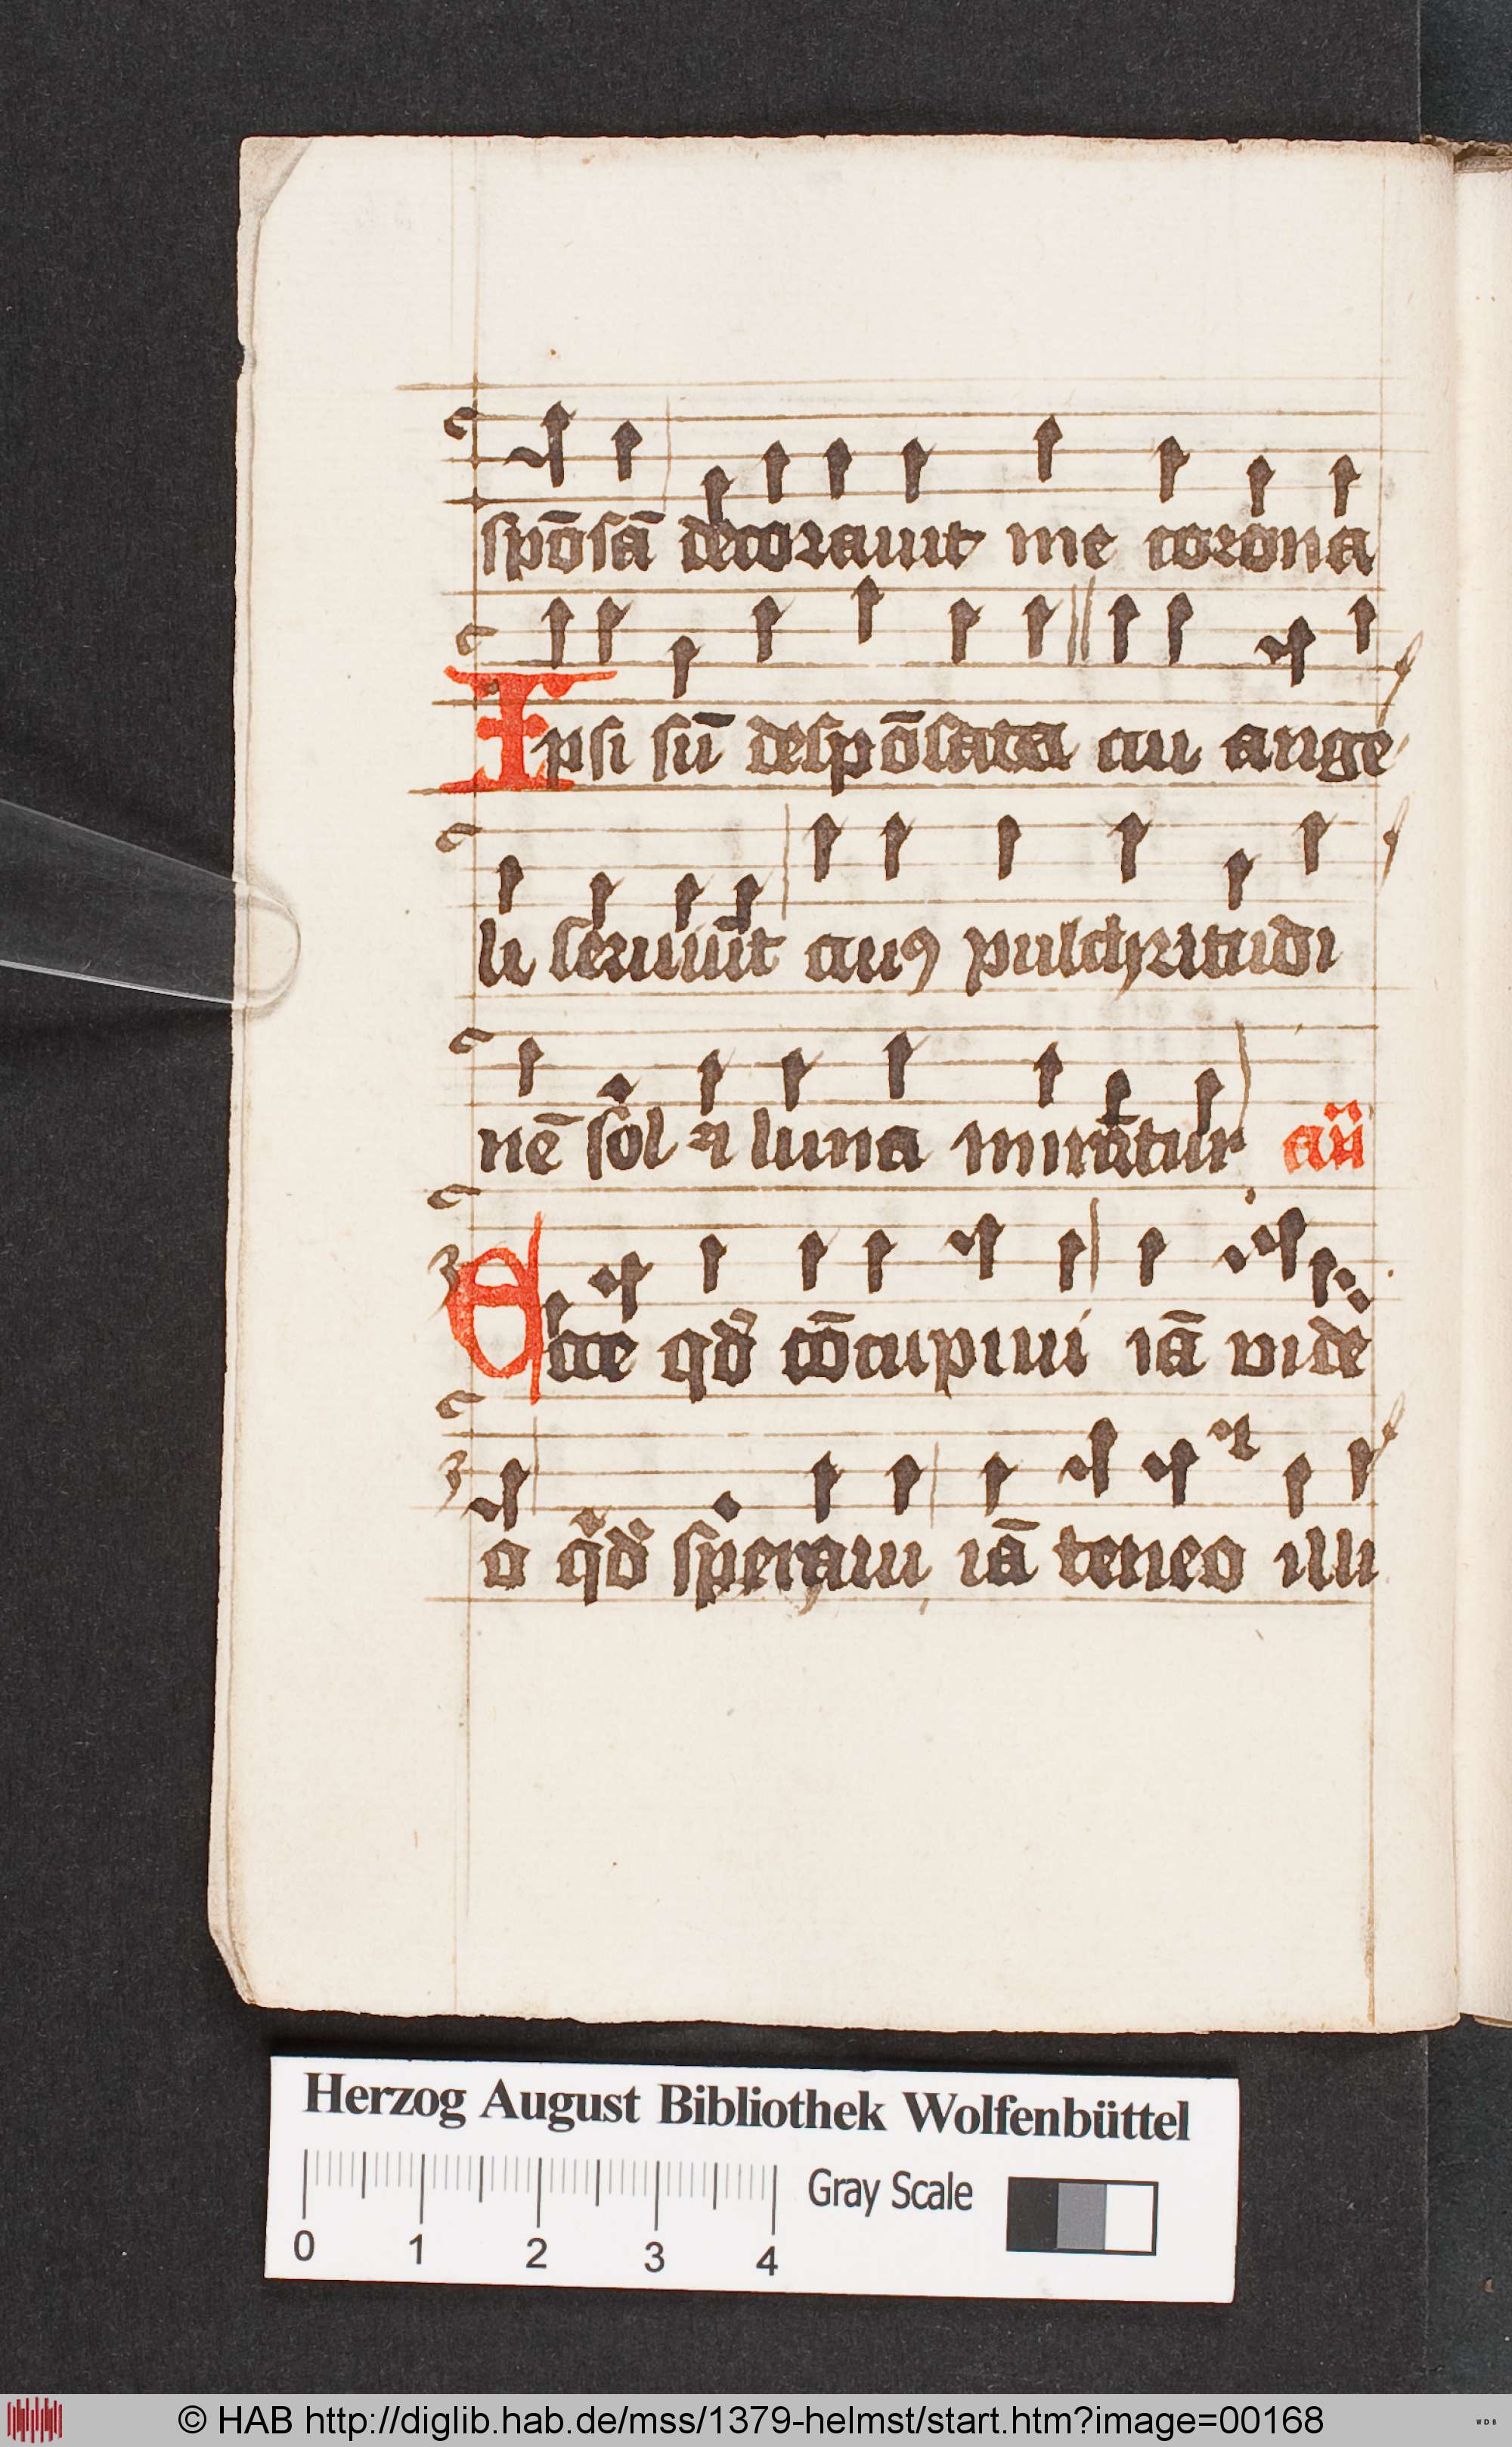 spōsā decorauit me corona
Ipsi sū despōsata cui ange
li seruiūt cui9 pulchritudi
nē sol ⁊ luna mirātur aū
Ecce qd̕ cōcupiui iā vide
o qd̕ speraui iā teneo illi
Herzog August Bibliothek Wolfenbüttel
0 1 2 3 4 Gray Scale
© HAB http://diglib.hab.de/mss/1379-helmst/start.htm?image=00168
WDB